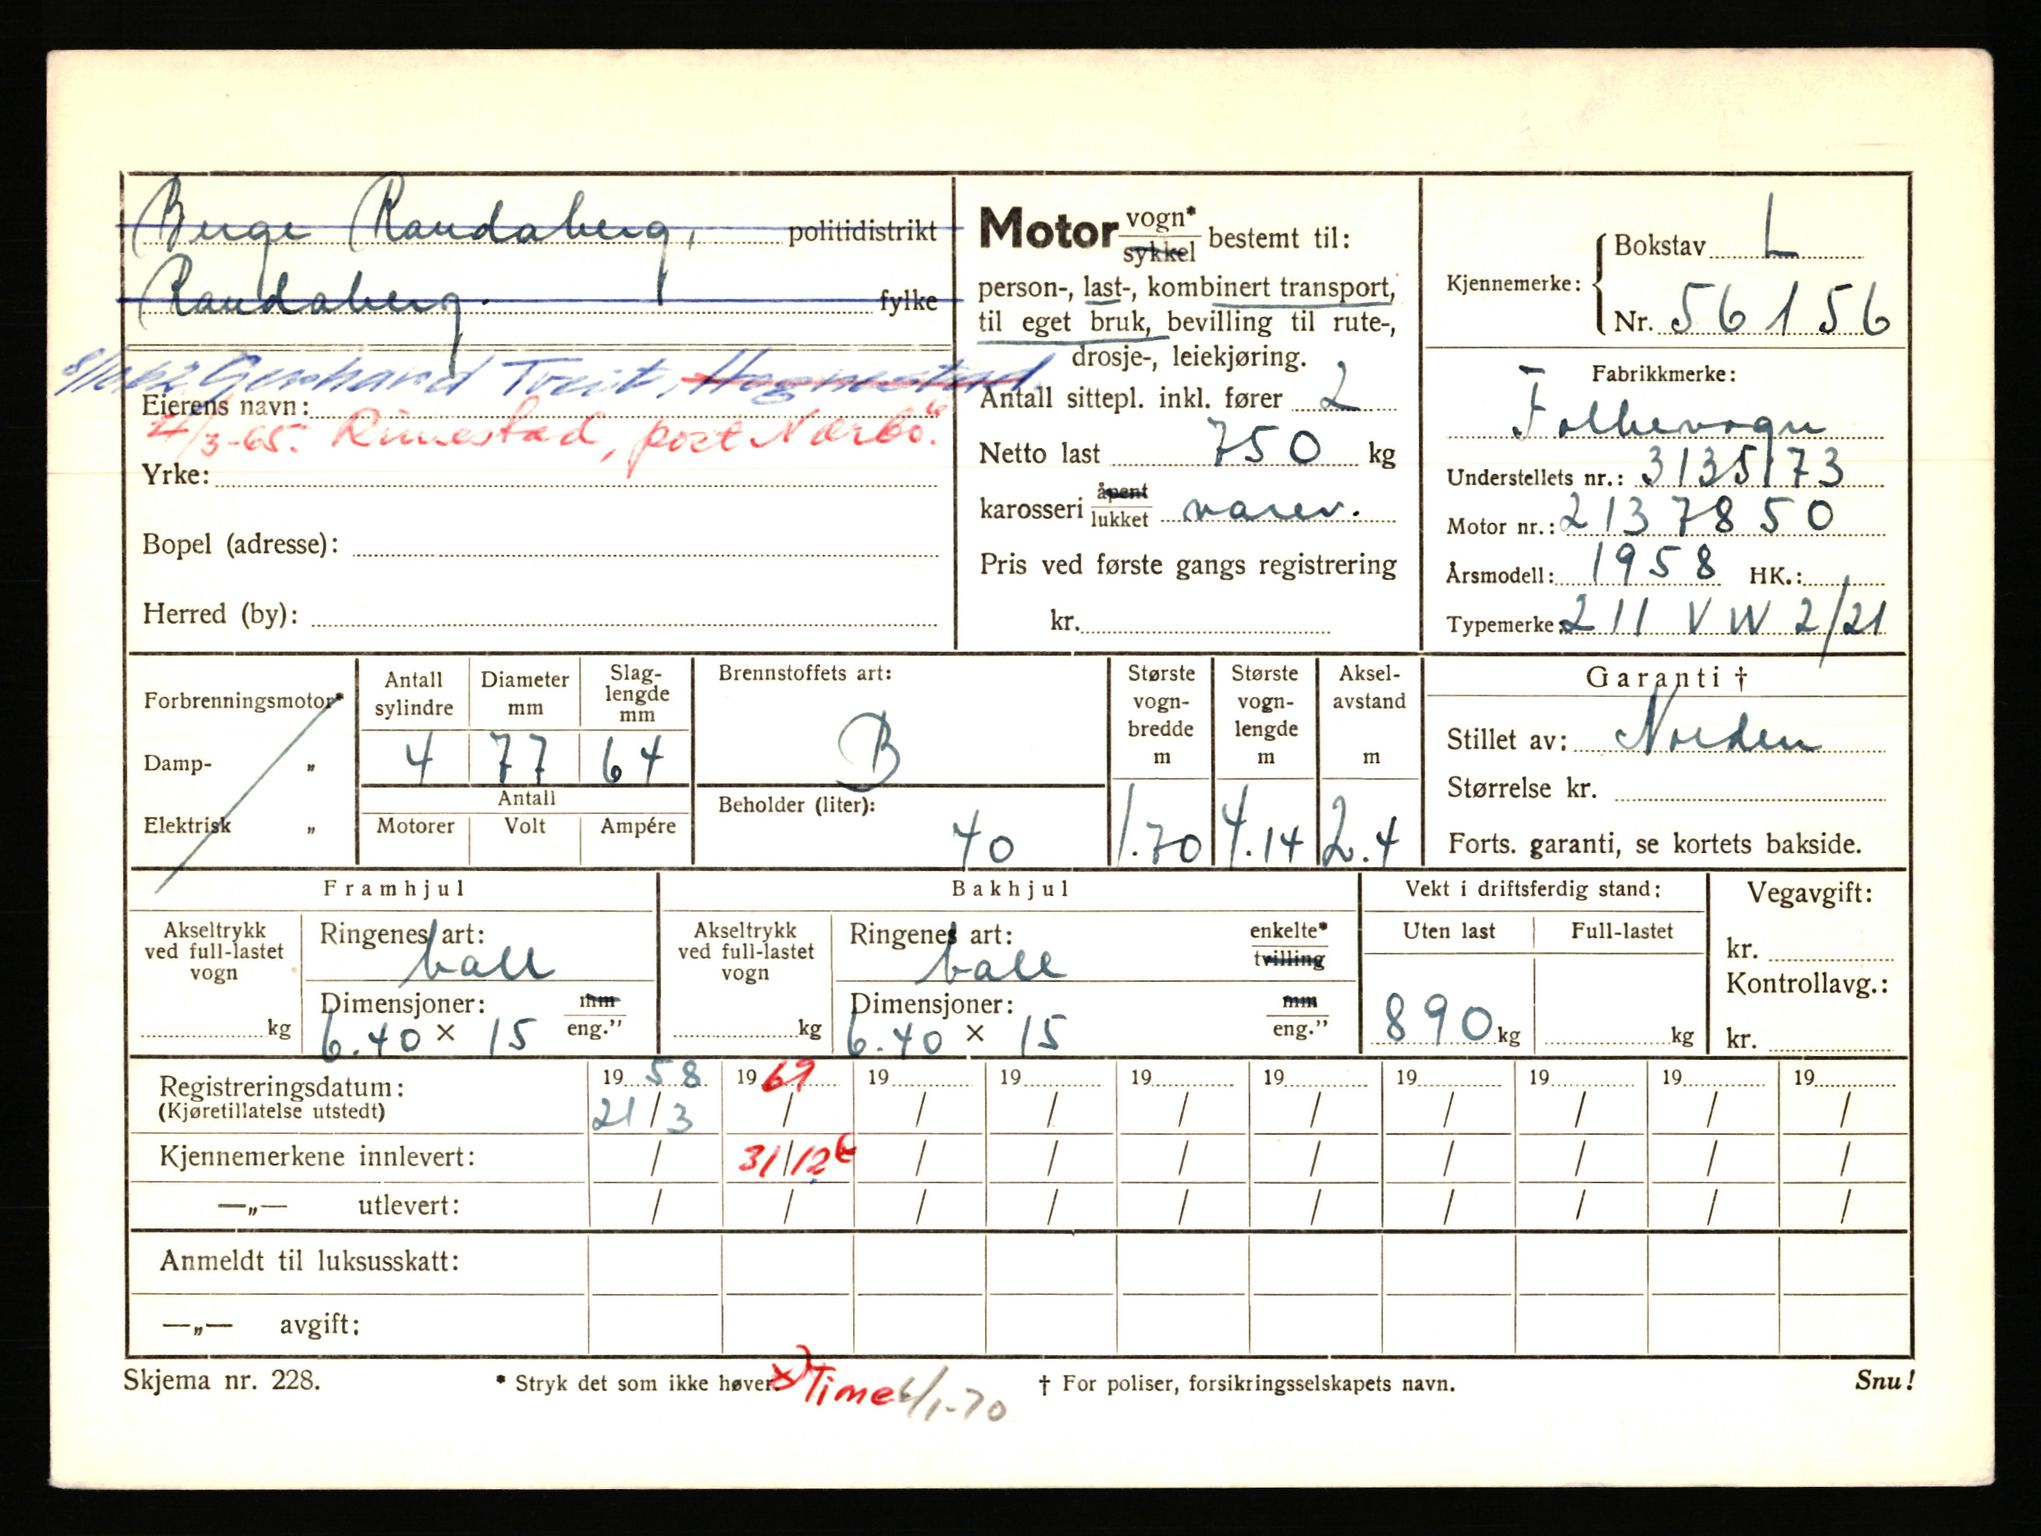 Berge Randaberg, politidistrikt
Randaberg. fylke
Gerhard Treit, Hognestad.
Eierens navn:
4/3-65. Rimestad, post Nærbø.
Yrke:
Bopel (adresse):
Herred (by):
Motor vogn* sykkel bestemt til:
person-, last-, kombinert transport,
til eget bruk, bevilling til rute-,
drosje-, leiekjøring.
Antall sittepl. inkl. fører 2
Netto last 750 kg
karosseri åpent lukket varev.
Pris ved første gangs registrering
kr.
Kjennemerke: Bokstav L
Nr. 56156
Fabrikkmerke:
Folkevogn
Understellets nr.: 3135173
Motor nr.: 2137850
Årsmodell: 1958 HK.:
Typemerke: 211 VW 2/21
Forbrenningsmotor*
Damp- „
Elektrisk „
Antall sylindre
4
Diameter mm
77
Slag-lengde mm
64
Antall
Motorer Volt Ampére
Brennstoffets art:
B
Beholder (liter):
40
Største vogn-bredde m
1.70
Største vogn-lengde m
4.14
Aksel-avstand m
2.4
Garanti †
Stillet av: Norden
Størrelse kr.
Forts. garanti, se kortets bakside.
Framhjul
Akseltrykk ved full-lastet vogn
kg
Ringenes art:
ball
Dimensjoner: mm
6.40 × 15 eng.”
Bakhjul
Akseltrykk ved full-lastet vogn
kg
Ringenes art: enkelte*
ball tvilling
Dimensjoner: mm
6.40 × 15 eng.”
Vekt i driftsferdig stand:
Uten last Full-lastet
890 kg kg
Vegavgift:
kr.
Kontrollavg.:
kr.
Registreringsdatum: 19 58 19 69 19 19 19 19 19 19 19 19
(Kjøretillatelse utstedt) 21/3 / / / / / / / / /
Kjennemerkene innlevert: / 31/12 / / / / / / / /
—„— utlevert: / / / / / / / / / /
Anmeldt til luksusskatt:
—„— avgift:
Skjema nr. 228. * Stryk det som ikke høver. x) Time 6/1-70 † For poliser, forsikringsselskapets navn. Snu!